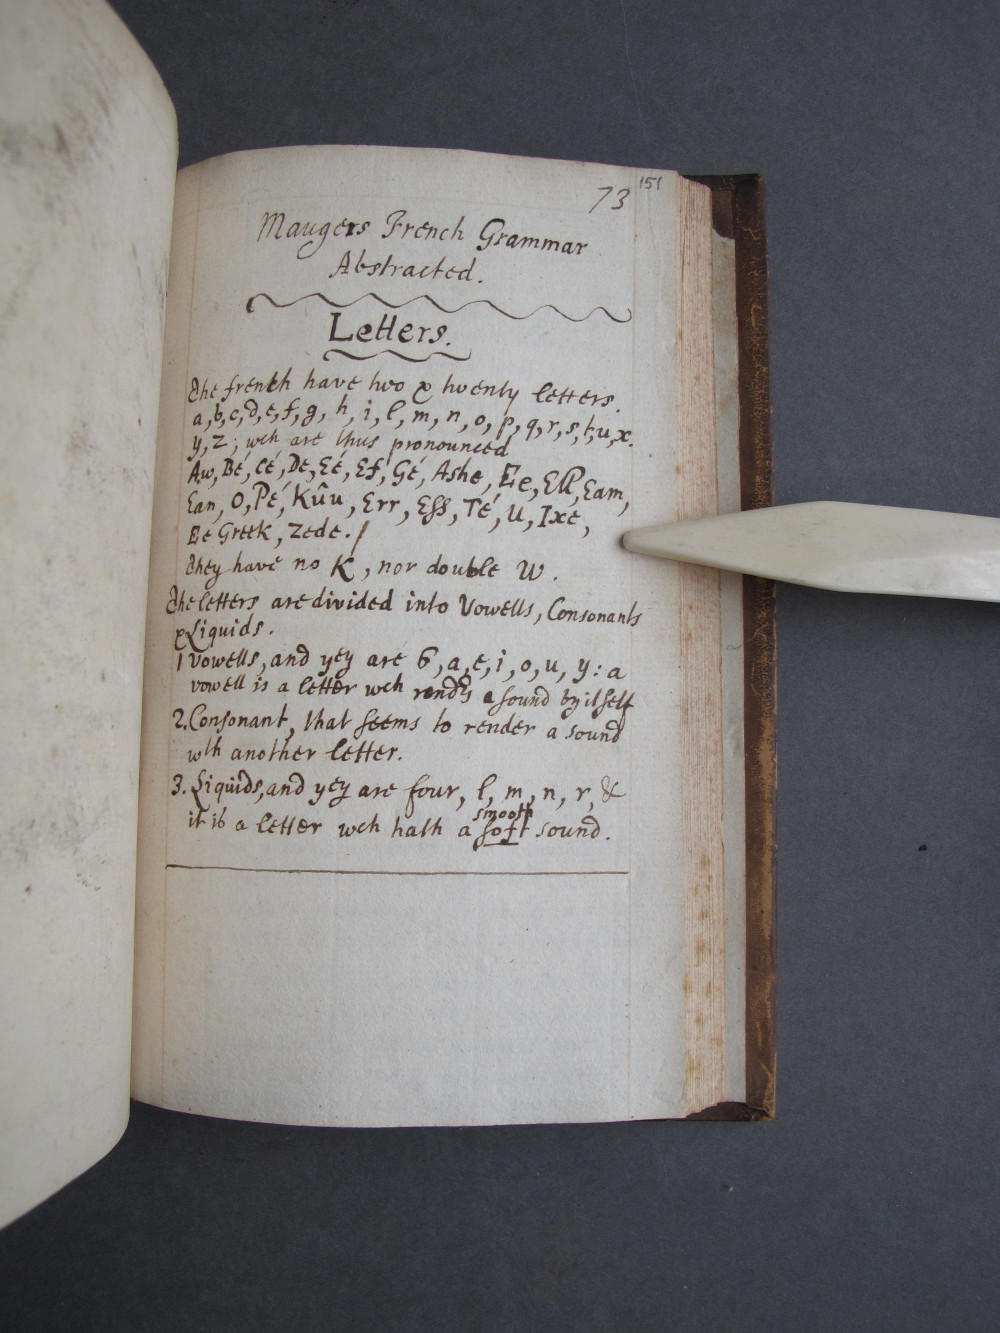 73 151
Maugers French Grammar
Abstracted.
Letters.
The french have two & twenty letters.
a, b, c, d, e, f, g, h, i, l, m, n, o, p, q, r, s, t, u, x.
y, z ; wch are thus pronounced
Aw, Bé, cé, De, Eé, Ef, Gé, Ashe, Ee, Ell, Eam,
Ean, O, Pé, Kûu, Err, Ess, Té, U, Ixe,
Ee Greek, Zede. /
They have no K, nor double W.
The letters are divided into Vowells, Consonants
& Liquids.
1 Vowells, and yey are 6, a, e, i, o, u, y : a
vowell is a letter wch rendrs a sound by itself
2. Consonant, that seems to render a sound
wth another letter.
3. Liquids, and yey are four, l, m, n, r, &
smooth
it is a letter wch hath a soft sound.